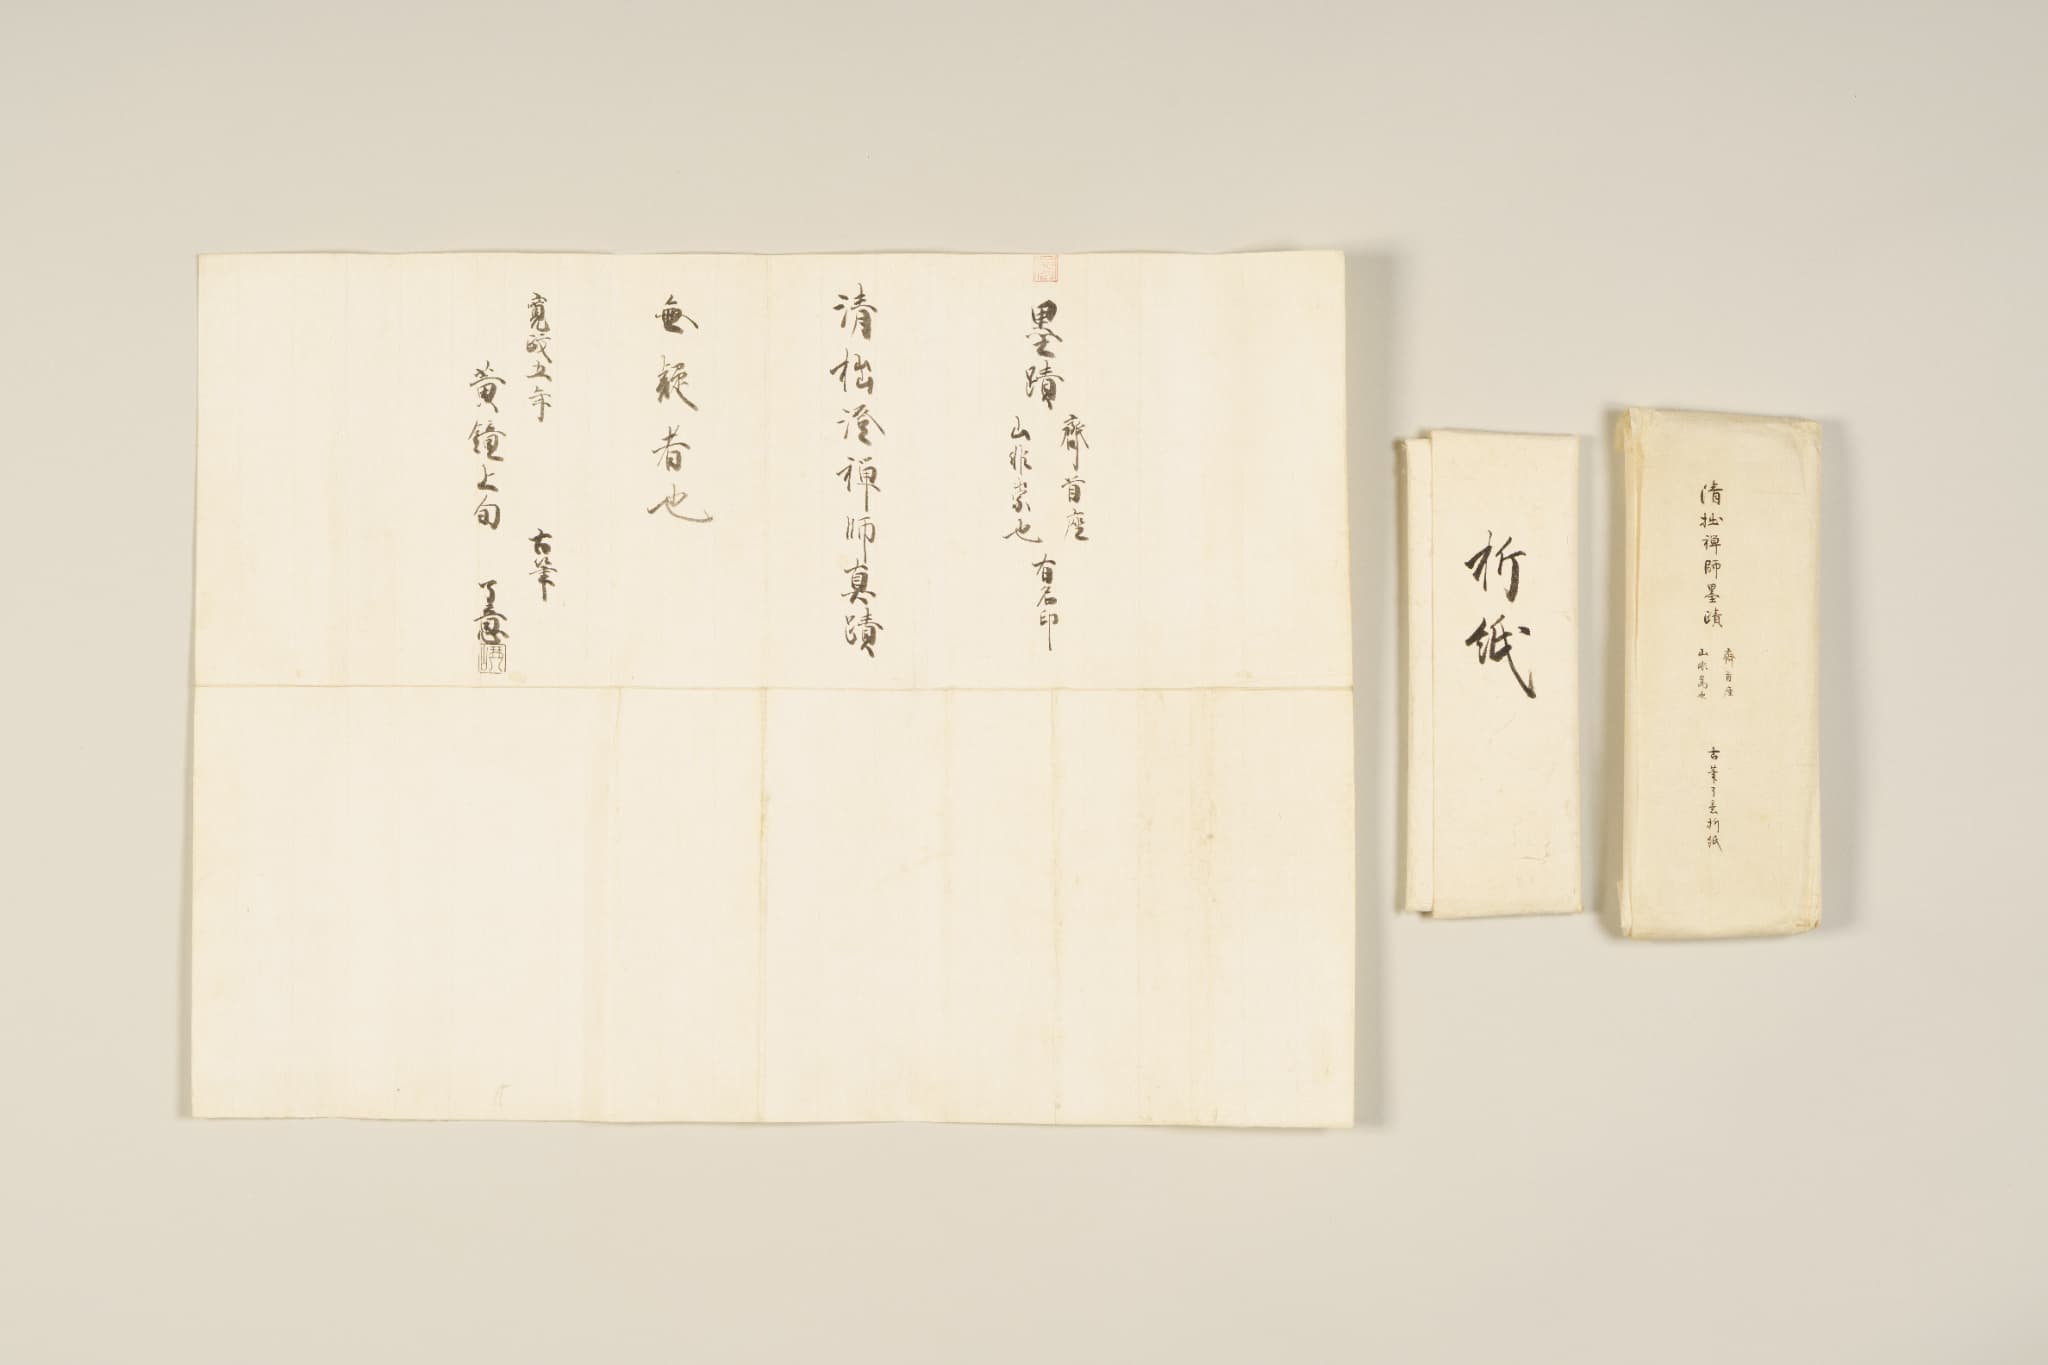 清拙禅師墨蹟
齊首座
山非高也
古筆了意折紙
折紙
墨蹟
齊首座
山非崇也
有名印
清拙澄禅師真蹟
無疑者也
寛政五年
古筆
黄鐘上旬
了意